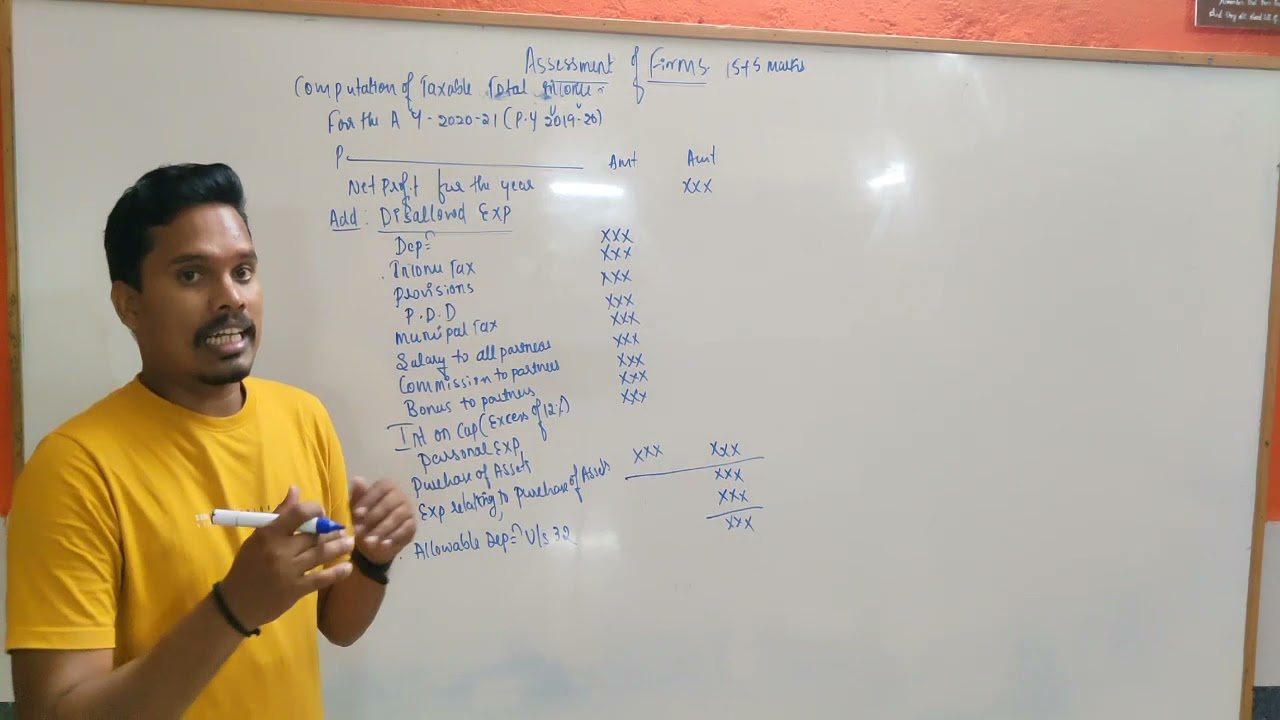 Assessment of Firms 15+5 marks
Computation of Taxable Total Income
For the A Y - 2020-21 (P.Y 2019-20)
P Amt Amt
Net Profit for the year XXX
Add: Disallowed Exp
Dep= XXX
Income Tax XXX
Provisions XXX
P.D.D XXX
Municipal Tax XXX
Salary to all partners XXX
Commission to partners XXX
Bonus to partners XXX
Int on Cap (Excess of 12%) XXX
Personal Exp
Purchase of Assets XXX XXX
Exp relating to Purchase of Assets XXX
XXX
Allowable Dep= U/s 32 XXX